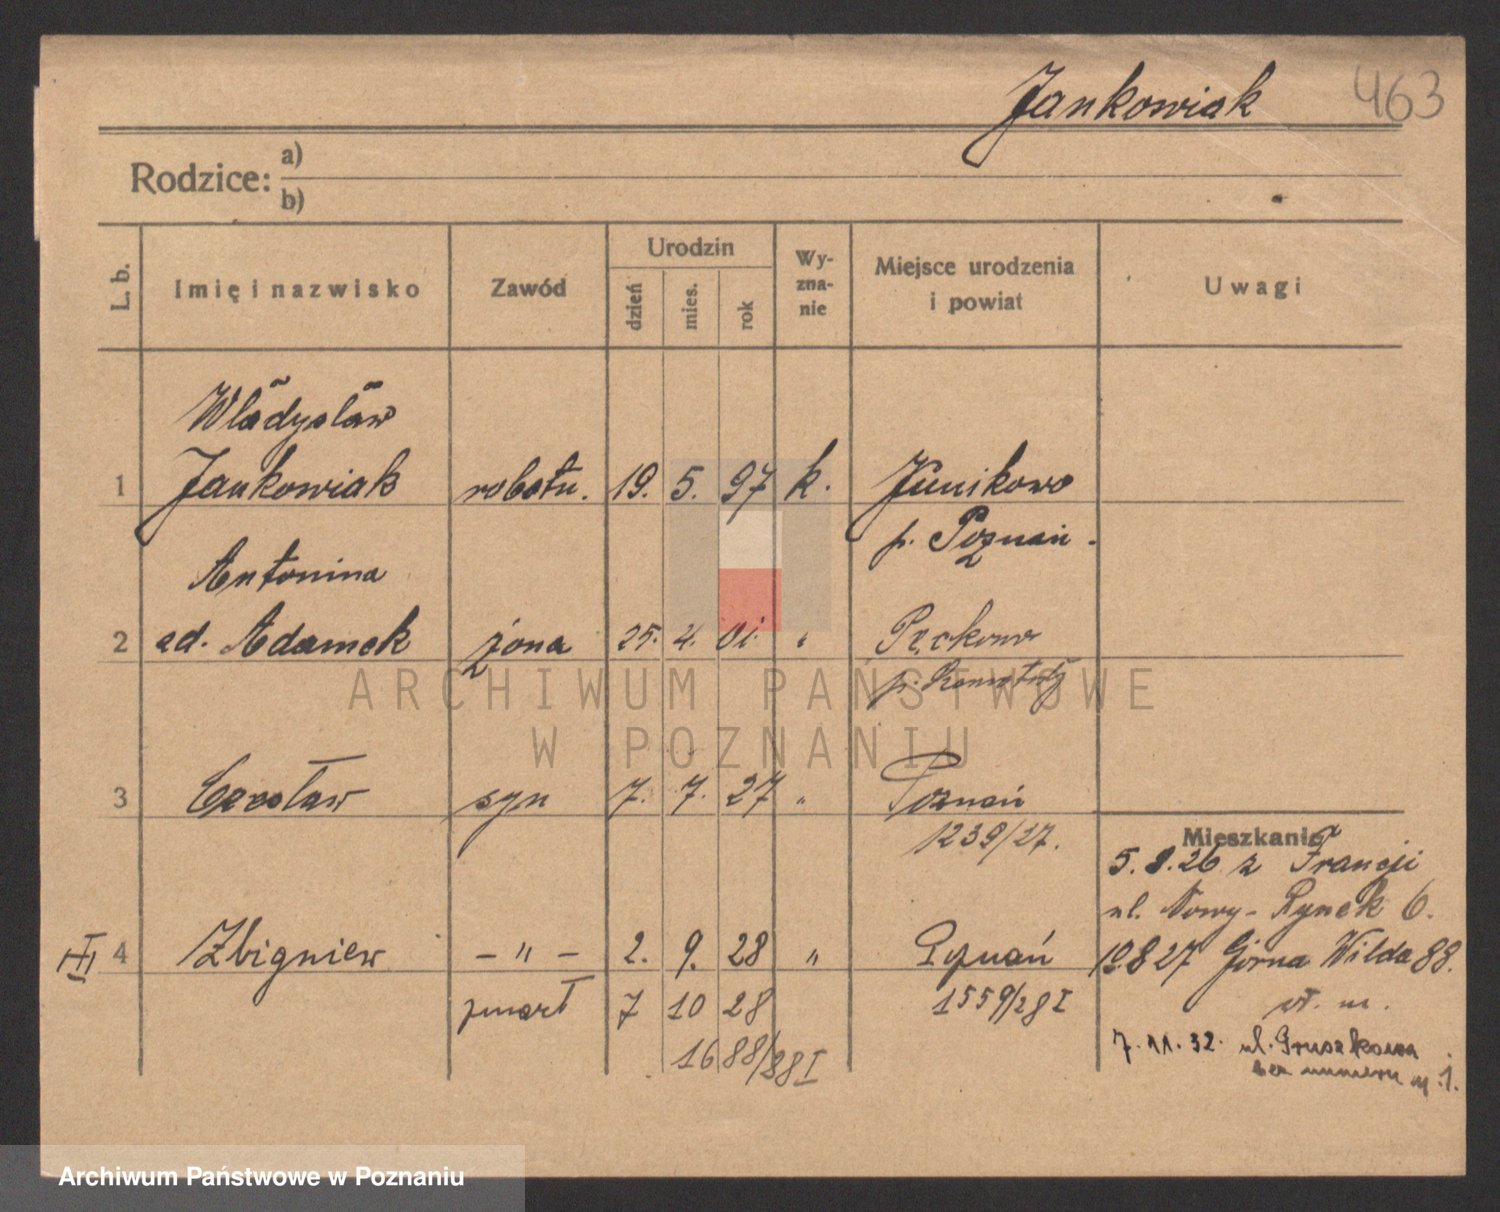 Jankowiak 463
Rodzice: a)
b)
L. b. Imię i nazwisko Zawód Urodzin dzień mies. rok Wyznanie Miejsce urodzenia i powiat Uwagi
Władysław
1 Jankowiak robotn. 19. 5. 97 k. Junikowo
p. Poznań.
Antonina
2 ad. Adamek żona 25. 4. 01. "
3 Czesław syn 7. 7. 27 " Poznań
1239/27.
Mieszkanie
5. 26 z Francji
ul. Nowy-Rynek 6.
III 4 Zbigniew – " – 2. 9. 28 " Poznań 19827 Górna Wilda 88.
zmarł 7 10 28 1559/28 I
1688/28 I
7. 11. 32. ul. Gruszkowa
bez numeru m. 1.
ARCHIWUM PAŃSTWOWE
W POZNANIU
Archiwum Państwowe w Poznaniu